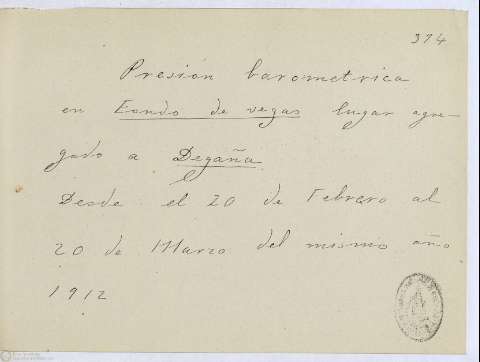 374
Presión barometrica
en Fondo de vegas lugar agre-
gado a Degaña
Desde el 20 de Febrero al
20 de Marzo del mismo año
1912